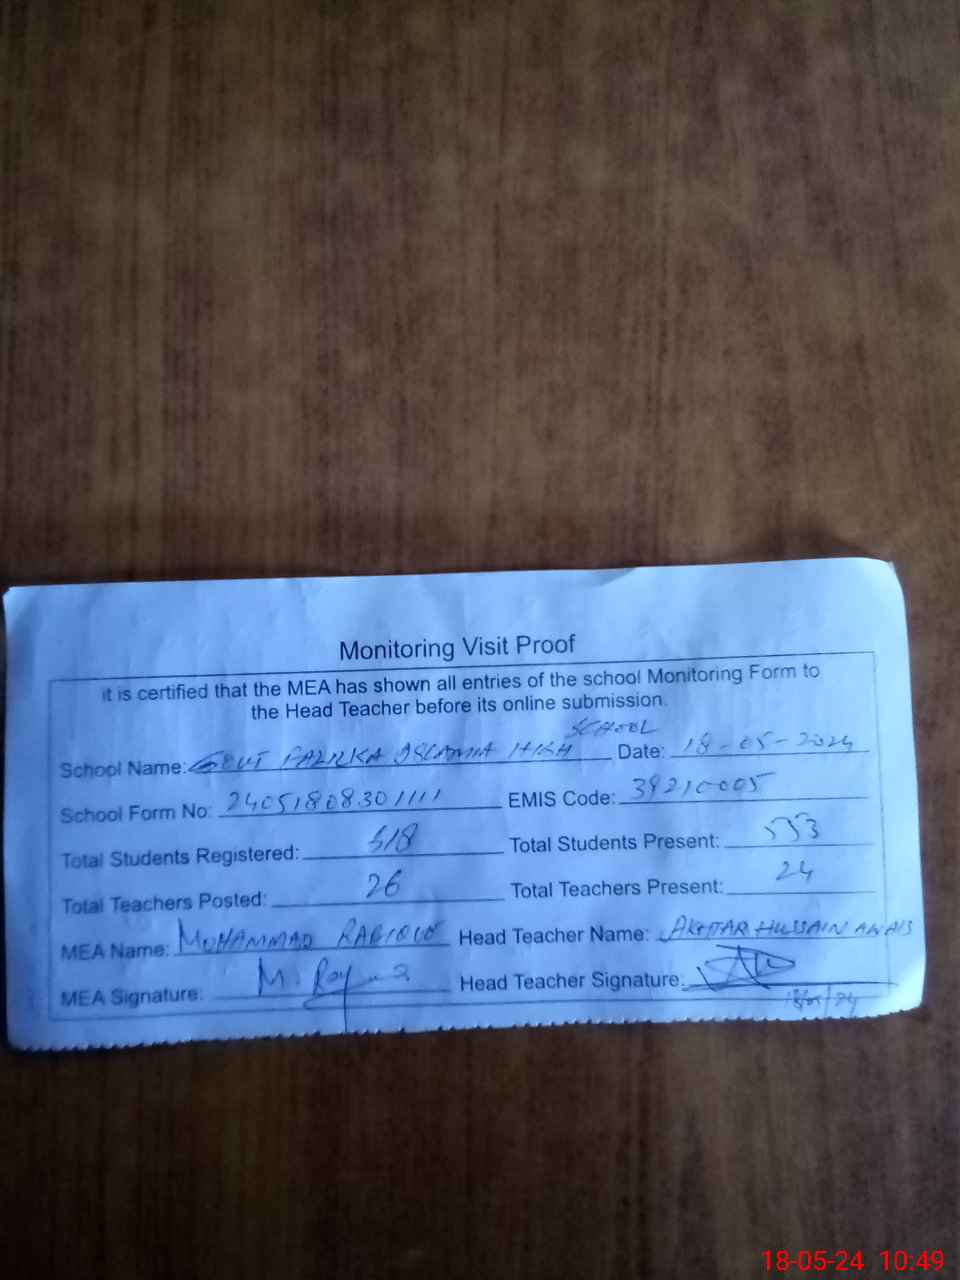 Monitoring Visit Proof
it is certified that the MEA has shown all entries of the school Monitoring Form to
the Head Teacher before its online submission.
School Name: GOVT FAZILKA ISLAMIA HIGH SCHOOL Date: 18-05-2024
School Form No: 24051808301111 EMIS Code: 39210005
Total Students Registered: 618 Total Students Present: 553
Total Teachers Posted: 26 Total Teachers Present: 24
MEA Name: MUHAMMAD Head Teacher Name: AKHTAR HUSSAIN
MEA Signature: M. Head Teacher Signature:
18/05/24
18-05-24 10:49